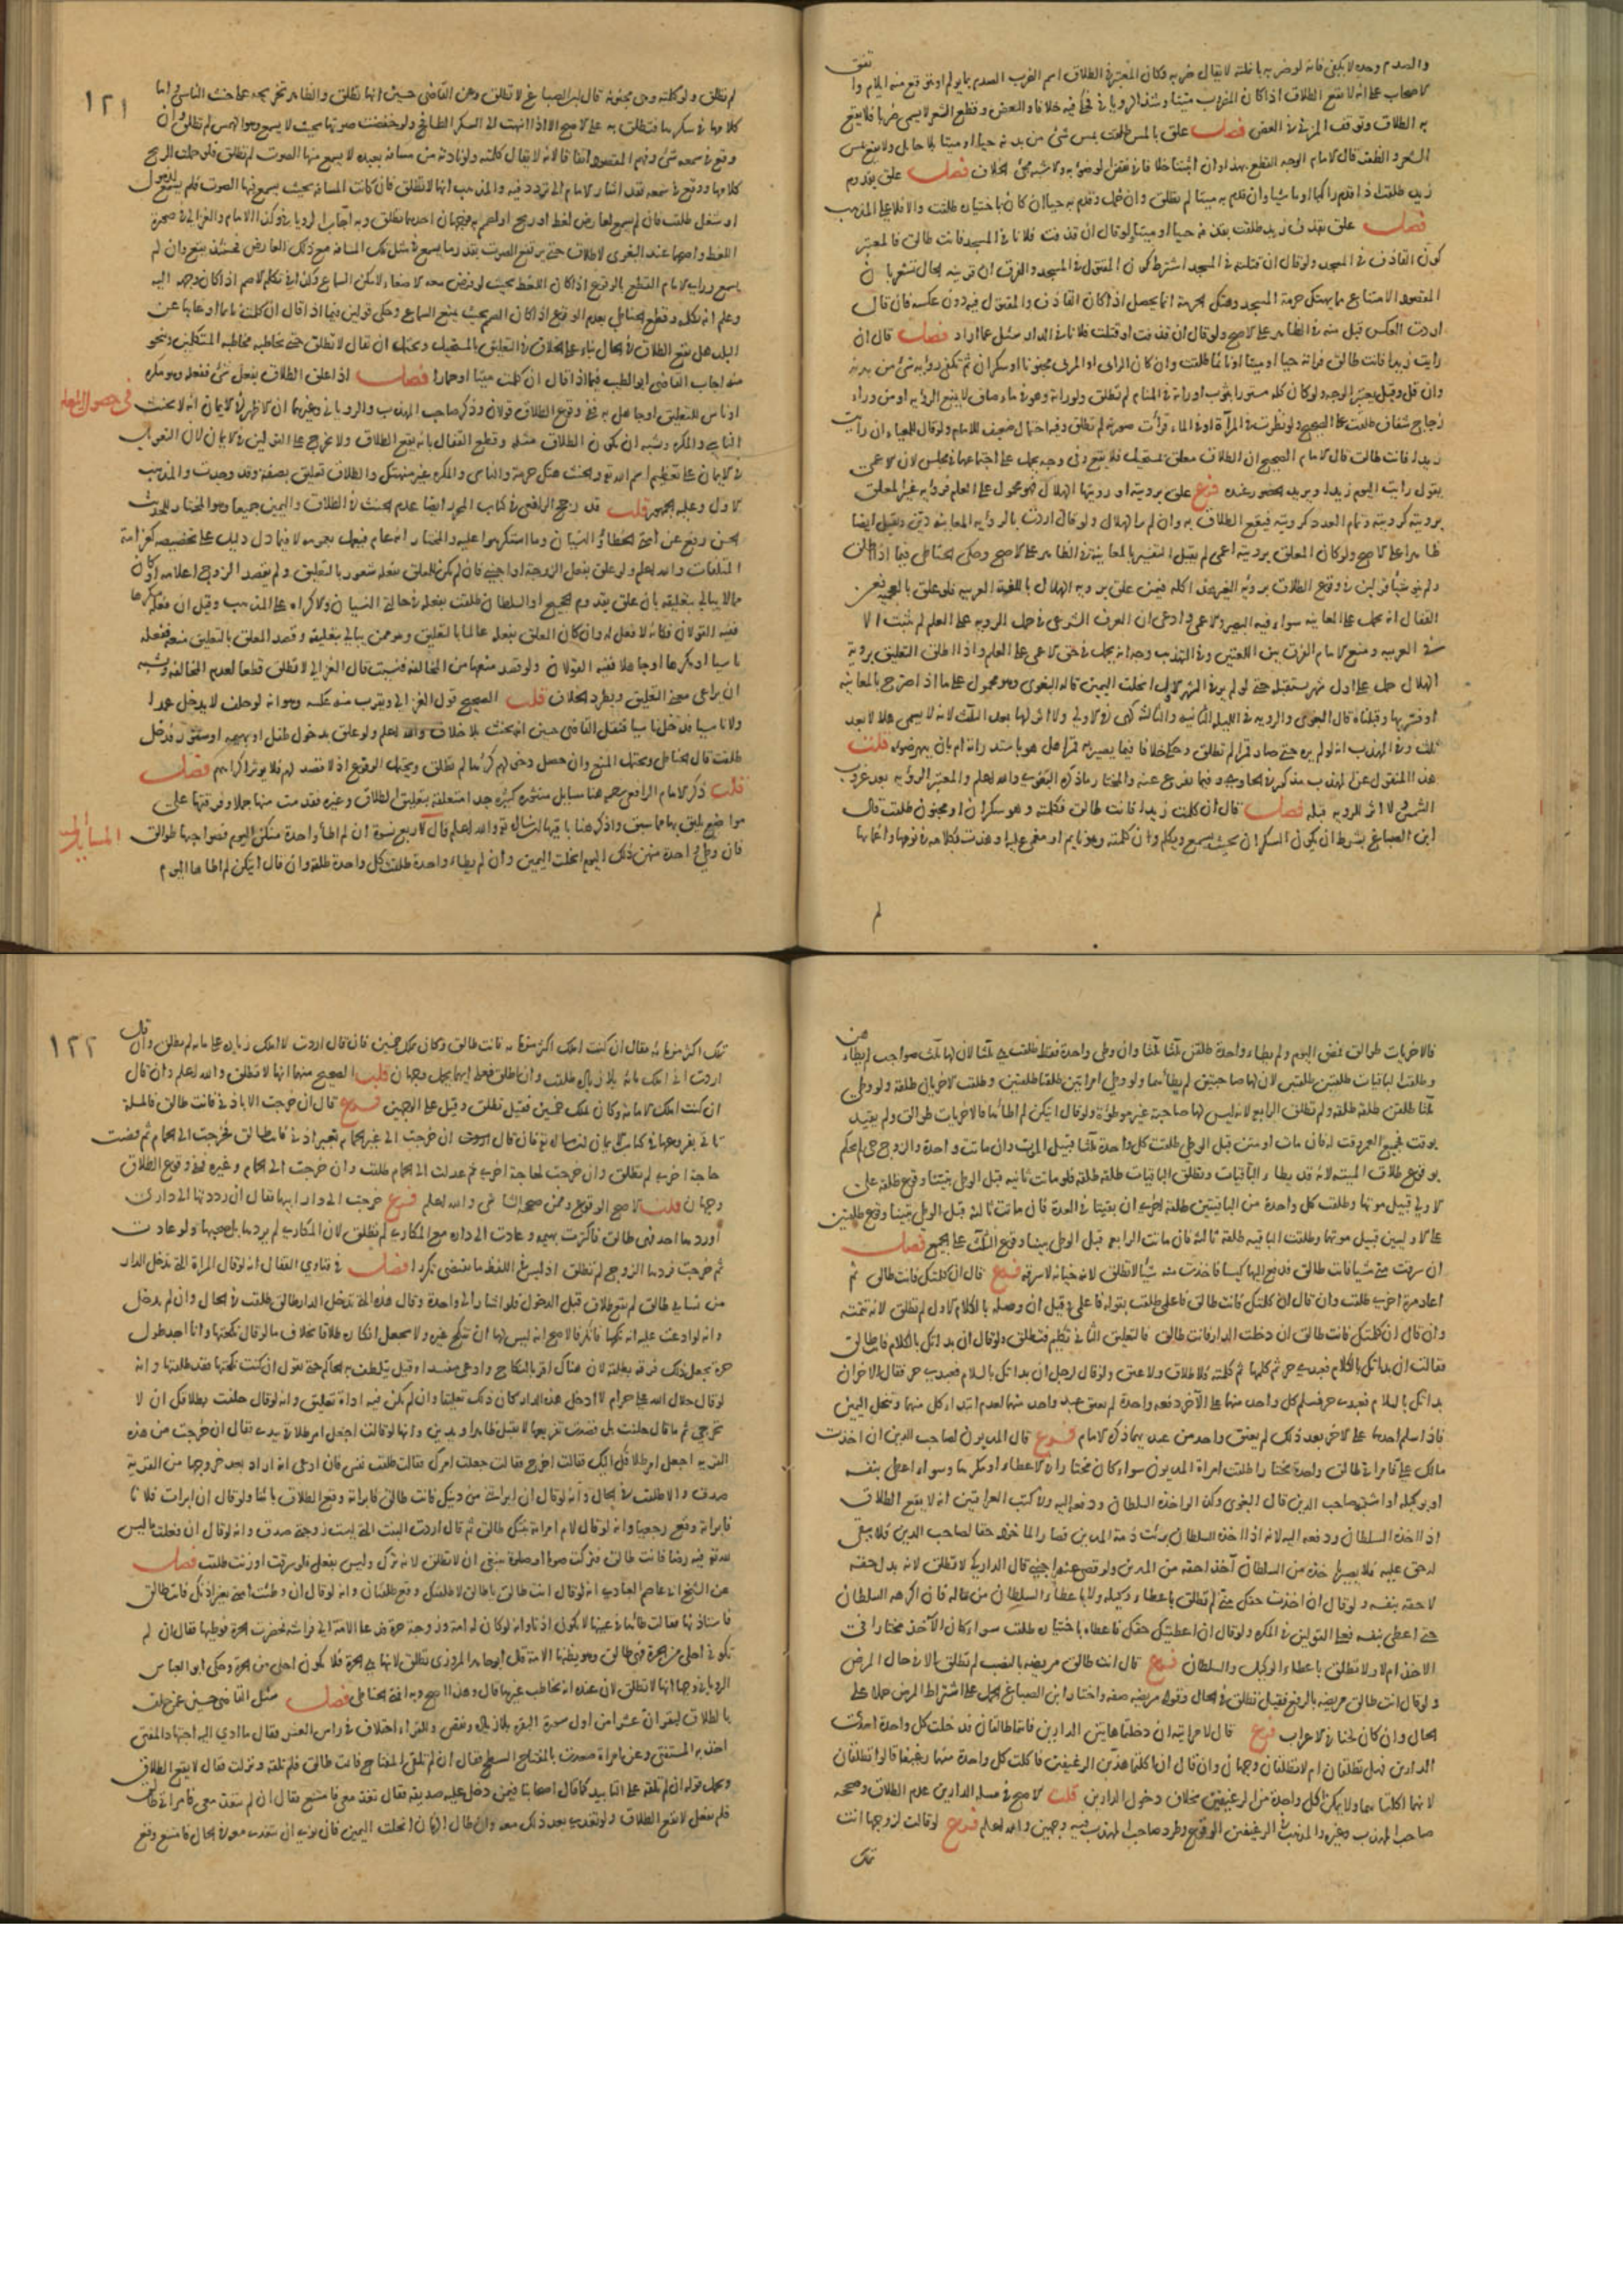 والصدم وحده لا يكفي فانه لو ضربه بانملة لا يقال ضربه وكان المعتبر في الطلاق اسم الضرب الصدم بما يولم او يتوقع منه ايلام واتفق
الاصحاب على انه لا يقع الطلاق اذا كان المضروب ميتا وشذ الروياني فحكى فيه خلافا والعض وقطع الشعر لا يسمى ضربا فلا يقع
به الطلاق وتوقف المزني في العض فصل علق بالمس طلقت بمس شيء من بدنه حيا او ميتا بلا حايل ولا يقع بمس
الشعر والظفر قال الامام الوجه القطع بهذا وان اثبتنا خلافا في نقض الوضوء به ولا شبه مجئ الخلاف فصل علق بقدوم
زيد طلقت اذا قدم راكبا او ماشيا وان قدم به ميتا لم تطلق وان حمل وقدم به حيا ان كان باختياره طلقت والا فلا على المذهب
فصل علق بقذف زيد طلقت بقذفه حيا او ميتا ولو قال ان قذفت فلانا في المسجد فانت طالق فالمعتبر
كون القاذف في المسجد ولو قال ان قتلته في المسجد اشترط كون المقتول في المسجد والفرق ان قرينة الحال تشعر بان
المقصود الامتناع مما يهتك حرمة المسجد وهتك الحرمة انما يحصل اذا كان القاذف والمقتول فيه دون عكسه فان قال
اردت العكس قبل منه في الظاهر على الاصح ولو قال ان قذفت او قتلت فلانا في الدار سئل عما اراد فصل قال ان
رايت زيدا فانت طالق فراته حيا او ميتا او نايما طلقت وان كان الراي او المرئي مجنونا او سكران ثم تكفي رؤية شيء من بدنه
وان قل وقيل يعتبر الوجه ولو كان كله مستورا بثوب او راته في المنام لم تطلق ولو راته وهو في ماء صاف لا يمنع الرؤية او من وراء
زجاج شفاف طلقت على الصحيح ولو نظرت في المرآة او في الماء فرأت صورته لم تطلق وفيه احتمال ضعيف للامام ولو قال للعمياء ان رايت
زيدا فانت طالق قال الامام الصحيح ان الطلاق معلق بمستحيل فلا يقع وفي وجه يحمل على اجتماعهما في مجلس لان الاعمى
يقول رايت اليوم زيدا ويريد الحضور عنده فرع علق برويته او رويتها الهلال فهو محمول على العلم فرؤية غير المعلق
برويته كرويته وتمام العدد كرويته فيقع الطلاق به وان لم ير الهلال ولو قال اردت بالرؤية المعاينة دين ويقبل ايضا
ظاهرا على الاصح ولو كان المعلق برويته اعمى لم يقبل التفسير بالمعاينة في الظاهر على الاصح وحكى الحناطي فيما اذا اطلق
ولم ينو شيأ قولين في وقوع الطلاق بروية الغير هذا كله فيمن علق بروية الهلال باللغة العربية فلو علق بالعجمية فعن
القفال انه يحمل على المعاينة سواء فيه البصير والاعمى وادعى ان العرف الشرعي في حمل الروية على العلم لم يثبت الا
في العربية ومنع الامام الفرق بين اللغتين وفي التهذيب وجه انه يحمل في حق الاعمى على العلم واذا اطلق التعليق بروية
الهلال حمل على اول شهر يستقبله حتى لو لم ير في الشهر الاول انحلت اليمين قاله البغوي وهو محمول على ما اذا صرح بالمعاينة
او فسر بها وقبلناه قال البغوي والروية في الليلة الثانية والثالثة كهي في الاولى ولا اثر لها بعد الثلث لانه لا يسمى هلالا بعد
ثلث وفي المهذب انه لو لم يره حتى صار قمرا لم تطلق وحكى خلافا فيما يصير به قمرا هل هو باستدارته ام بان يبهر ضوءه قلت
هذا المنقول عن المهذب مذكور في الحاوي وفيما تفرع عنه والمختار ما ذكره البغوي والله اعلم والمعتبر الرؤية بعد غروب
الشمس ولا اثر للروية قبله فصل قال ان كلمت زيدا فانت طالق فكلمته وهو سكران او مجنون طلقت قال
ابن الصباغ يشترط ان يكون السكران بحيث يسمع ويكلم وان كلمته وهو نايم او مغمى عليه او هذت بكلامه في نومها واغمائها
لم
١٢١
لم تطلق ولو كلمته وهي مجنونة قال ابن الصباغ لا تطلق وعن القاضي حسين انها تطلق والظاهر تخريجه على حنث الناسي واما
كلامها في سكرها فتطلق به على الاصح الا اذا انتهت الى السكر الطافح ولو خفضت صوتها بحيث لا يسمع وهو الهمس لم تطلق وان
وقع في سمعه شيء وفهم المقصود اتفاقا لانه لا يقال كلمته ولو نادته من مسافة بعيدة لا يسمع منها الصوت لم تطلق فلو حملت الريح
كلامها ووقع في سمعه فقد اشار الامام الى تردد فيه والمذهب انها لا تطلق فان كانت المسافة بحيث يسمع فيها الصوت فلم يسمع لذهول
او شغل طلقت فان لم يسمع لعارض لغط او ريح او لصمم به فوجهان احدهما تطلق وبه اجاب الروياني وكذا الامام والغزالي في صورة
اللغط واصحهما عند البغوي لا تطلق حتى يرتفع الصوت بقدر ما يسمع في مثل تلك المسافة مع ذلك العارض فحينئذ يقع وان لم
يسمع ورايه الامام القطع بالوقوع اذا كان اللغط بحيث لو فرض معه الاصغاء لامكن السماع وكذلك في تكليم الاصم اذا كان وجهه اليه
وعلم انه يكلمه وقطع الحناطي بعدم الوقوع اذا كان الصمم بحيث يمنع السماع وحكى قولين فيما اذا قال ان كلمت نايما او غايبا عن
البلد هل يقع الطلاق في الحال بناء على الخلاف في التعليق بالمستحيل ويحتمل ان يقال لا تطلق حتى يخاطبه مخاطبة المتكلمين ونحو
منه اجاب القاضي ابو الطيب فيما اذا قال ان كلمت ميتا او حمارا فصل اذا علق الطلاق بفعل شيء ففعله وهو مكره
في حصول المعلق
او ناس للتعليق او جاهل به ففي وقوع الطلاق قولان وذكر صاحب المهذب والروياني وغيرهما ان الاظهر في الايمان انه لا يحنث
الناسي والمكره ويشبه ان يكون الطلاق مثله وقطع القفال بانه يقع الطلاق ولا يخرج على القولين في الايمان لان التعويل
في الايمان على تعظيم اسم الله تعالى والحنث هتك حرمة والناسي والمكره غير منهتك والطلاق تعليق بصفة وقد وجدت والمذهب
الاول وعليه الجمهور قلت قد رجح الرافعي في كتاب المحرر ايضا عدم الحنث في الطلاق واليمين جميعا وهو المختار للحديث
الحسن رفع عن امتي الخطأ والنسيان وما استكرهوا عليه والمختار انه عام فيعمل بعمومه الا فيما دل دليل على تخصيصه كغرامة
المتلفات والله اعلم ولو علق بفعل الزوجة او اجنبي فان لم يكن للمعلق بفعله شعور بالتعليق ولم يقصد الزوج اعلامه او كان
ممن لا يبالي بتعليقه بان علق بقدوم الحجيج او السلطان طلقت بفعله في حالة النسيان والاكراه على المذهب وقيل ان فعله مكرها
ففيه القولان فكانه لا فعل له وان كان المعلق بفعله عالما بالتعليق وهو ممن يبالي بتعليقه وقصد المعلق بالتعليق منعه ففعله
ناسيا او مكرها او جاهلا ففيه القولان ولو قصد منعها من المخالفة فنسيت قال الغزالي لا تطلق قطعا لعدم المخالفة ويشبه
ان يراعى معنى التعليق ويطرد الخلاف قلت الصحيح قول الغزالي ويقرب منه عكسه وهو انه لو حلف لا يدخل عمدا
ولا ناسيا فدخل ناسيا فنقل القاضي حسين انه يحنث بلا خلاف والله اعلم ولو علق بدخول طفل او بهيمة او سنور فدخل
طلقت قال الحناطي ويحتمل المنع وان حصل دخولهم كرها لم تطلق ويحتمل الوقوع اذ لا قصد لهم فلا يوثر اكراههم فصل
قلت ذكر الامام الرافعي رحمه هنا مسايل منثورة كثيرة جدا متعلقة بتعليق الطلاق وغيره فقدمت منها جملا وفرقتها على
مواضع تليق بها مما سبق واذكر هنا باقيها ان شاء الله تعالى والله اعلم قال لاربع نسوة ان لم اطأ واحدة منكن اليوم فصواحبها طوالق
المسايل
فان وطئ واحدة منهن ذلك اليوم انحلت اليمين وان لم يطاء واحدة طلقت كل واحدة طلقة وان قال ايتكن لم اطاها اليوم
فالاخريات طوالق فمضى اليوم ولم يطاء واحدة طلقن ثلثا ثلثا وان وطى واحدة فقط طلقت هي ثلثا لان لها ثلث صواحب لم يطاءهن
وطلقت الباقيات طلقتين طلقتين لان لها صاحبتين لم يطأهما ولو وطئ امراتين طلقتا طلقتين وطلقت الاخريان طلقة ولو وطئ
ثلثا طلقن طلقة طلقة ولم تطلق الرابعة لانه ليس لها صاحبة غير موطوءة ولو قال ايتكن لم اطأها فالاخريات طوالق ولم يقيد
بوقت فجميع العمر وقت له فان مات او متن قبل الوطئ طلقت كل واحدة ثلثا قبيل الموت وان ماتت واحدة والزوج حي لم يحكم
بوقوع طلاق الميتة لانه قد يطاء الباقيات وتطلق الباقيات طلقة طلقة فلو ماتت ثانية قبل الوطئ تبينا وقوع طلقة على
الاولى قبيل موتها وطلقت كل واحدة من الباقيتين طلقة اخرى ان بقيتا في العدة فان ماتت ثالثة قبل الوطئ تبينا وقوع طلقتين
على الاوليين قبيل موتهما وطلقت الباقية طلقة ثالثة فان ماتت الرابعة قبل الوطئ تبينا وقوع الثلث على الجميع فصل
ان سرقت مني شيأ فانت طالق فدفع اليها كيسا فاخذت منه شيأ لا تطلق لانه خيانة لا سرقة فرع قال ان كلمتك فانت طالق ثم
اعاد مرة اخرى طلقت وان قال ان كلمتك فانت طالق فاعلمي طلقت بقوله فاعلمي وقيل ان وصله بالكلام الاول لم تطلق لانه تتمته
وان قال ان كلمتك فانت طالق ان دخلت الدار فانت طالق فالتعليق الثاني تكليم فتطلق ولو قال ان بدأتك بالكلام فانت طالق
فقالت ان بدأتك بالكلام فعبدي حر ثم كلمها ثم كلمته فلا طلاق ولا عتق ولو قال لرجل ان بدأتك بالسلام فعبدي حر فقال الاخر ان
بدأتك بالسلام فعبدي حر فسلم كل واحد منهما على الآخر دفعة واحدة لم يعتق عبد واحد منهما لعدم ابتداء كل منهما وتنحل اليمين
فاذا سلم احدهما على الاخر بعد ذلك لم يعتق واحد من عبديهما ذكره الامام فرع قال المديون لصاحب الدين ان اخذت
مالك علي فامراتي طالق واخذه مختارا طلقت امراة المديون سواء كان مختارا في الاعطاء او مكرها وسواء اعطى بنفسه
او بوكيله او استلبه صاحب الدين قال البغوي وكذا لو اخذه السلطان ودفعه اليه وفي كتب العراقيين انه لا يقع الطلاق
اذا اخذه السلطان ودفعه اليه لانه اذا اخذه السلطان برئت ذمة المدين وصار الماخوذ حقا لصاحب الدين فلا يبقى
له حق عليه فلا يصير باخذه من السلطان آخذا حقه من المدين ولو قضى عنه اجنبي قال الداركي لا تطلق لانه بدل حقه
لا حقه بنفسه ولو قال ان اخذت حقك مني لم تطلق باعطاء وكيله ولا باعطاء السلطان من ماله فان اكرهه السلطان
حتى اعطى بنفسه فعلى القولين في المكره ولو قال ان اعطيتك حقك فاعطاه باختياره طلقت سواء كان الآخذ مختارا في
الاخذ ام لا ولا تطلق باعطاء الوكيل والسلطان فرع قال انت طالق مريضة بالنصب لم تطلق الا في حال المرض
ولو قال انت طالق مريضة بالرفع فقيل تطلق في الحال وقوله مريضة صفة واختار ابن الصباغ الحمل على اشتراط المرض حملا على
الحال وان كان لحنا في الاعراب فرع قال لامراتيه ان دخلتما هاتين الدارين فانتما طالقان فدخلت كل واحدة احدى
الدارين فهل تطلقان ام لا تطلقان وجهان وان قال ان اكلتما هذين الرغيفين فاكلت كل واحدة منهما رغيفا قالوا تطلقان
لانهما اكلتاهما ولا يمكن اكل واحدة من الرغيفين بخلاف دخول الدارين قلت الاصح في مسئلة الدارين عدم الطلاق وصححه
صاحب المهذب وغيره والمذهب في الرغيفين الوقوع وطرد صاحب المهذب فيه وجهين والله اعلم فرع لو قالت لزوجها انت
تملك
١٢٢
تملك اكثر من مائة فقال ان كنت املك اكثر من مائة فانت طالق وكان يملك خمسين فان قال اردت لا املك زيادة على مائة لم تطلق وان قال
اردت اني املك مائة بلا زيادة طلقت وان اطلق فعلى ايهما يحمل وجهان قلت الصحيح منهما انها لا تطلق والله اعلم وان قال
ان كنت املك الا مائة وكان يملك خمسين فقيل تطلق وقيل على الوجهين فرع قال ان خرجت الا باذني فانت طالق فالمسلة
تاتي بفروعها في كتاب الايمان ان شاء الله تعالى فان قال ان خرجت الى غير الحمام بغير اذني فانت طالق فخرجت الى الحمام ثم قضت
حاجة اخرى لم تطلق وان خرجت لحاجة اخرى ثم عدلت الى الحمام طلقت وان خرجت الى الحمام وغيره ففي وقوع الطلاق
وجهان قلت الاصح الوقوع وممن صححه الشاشي والله اعلم فرع خرجت الى دار ابيها فقال ان رددتها الى داري
او ردها احد فهي طالق فاكترت بهيمة وعادت الى داره مع المكاري لم تطلق لان المكاري لم يردها بل صحبها ولو عادت
ثم خرجت فردها الزوج لم تطلق اذ ليس في اللفظ ما يقتضي تكرارا فصل في فتاوي القفال انه لو قال المراة التي تدخل الدار
من نسايي طالق لم يقع طلاق قبل الدخول فلو اشار الى واحدة وقال هذه التي تدخل الدار طالق طلقت في الحال وان لم تدخل
وانه لو ادعت عليه انه نكحها فانكر فالاصح انه ليس لها ان تنكح غيره ولا يجعل انكاره طلاقا بخلاف ما لو قال نكحتها وانا اجد طول
حرة يجعل ذلك فرقة بطلقة لان هناك اقر بالنكاح وادعى مفسدا وقيل يتلطف به الحاكم حتى يقول ان كنت نكحتها فقد طلقتها وانه
لو قال حلال الله علي حرام لا ادخل هذه الدار كان ذلك تعليقا وان لم يكن فيه اداة تعليق وانه لو قال حلفت بطلاقك ان لا
تخرجي ثم قال ما حلفت بل قصدت تفزيعها لا يقبل ظاهرا ويدين وانها لو قالت اجعل امر طلاقي بيدي فقال ان خرجت من هذه
القرية اجعل امر طلاقك اليك فقالت اخرج فقال جعلت امرك فقالت طلقت نفسي فان ادعى انه اراد بعد خروجها من القرية
صدق والا طلقت في الحال وانه لو قال ان ابراتني من دينك فانت طالق فابراته وقع الطلاق باينا ولو قال ان ابرات فلانا
فابراته وقع رجعيا وانه لو قال لام امراته بنتك طالق ثم قال اردت البنت التي ليست زوجتي صدق وانه لو قال ان فعلت ما ليس
لله تعالى فيه رضا فانت طالق فتركت صوما او صلاة ينبغي ان لا تطلق لانه ترك وليس بفعل فلو سرقت او زنت طلقت فصل
عن الشيخ ابي عاصم العبادي انه لو قال انت طالق يا طالق لا طلقتك وقع طلقتان وانه لو قال ان وطئت امتي بغير اذنك فانت طالق
فاستاذنها فقالت طأها في عينها لا يكون اذنا وانه لو كان له امة وزوجة حرة فدعا الامة الى فراشه فحضرت الحرة فوطئها فقال ان لم
تكوني احلى من الحرة فهي طالق وهو يظنها الامة قال ابو حامد المروذي تطلق لانها هي الحرة فلا تكون احلى من الحرة وحكى ابو العباس
الروياني وجها انها لا تطلق لان عنده انه يخاطب غيرها قال وهذا اصح وبه افتى الحناطي فصل سئل القاضي حسين عمن حلف
بالطلاق ليقران عشرا من اول سورة البقرة بلا زيادة ونقص وللقراء اختلاف في راس العشر فقال ما ادى اليه اجتهاد المفتي
اخذ به المستفتي وعن امراة صعدت بالمفتاح السطح فقال ان لم تلقي المفتاح فانت طالق فلم تلقه ونزلت فقال لا يقع الطلاق
ويحمل قوله ان لم تلقه على التابيد كما قال اصحابنا فيمن دخل عليه صديقه فقال تغد معي فامتنع فقال ان لم تتغد معي فامراتي طالق
فلم يفعل لا يقع الطلاق ولو تغدى بعد ذلك معه وان طال الزمان انحلت اليمين فان نوى ان يتغدى معه في الحال فامتنع وقع